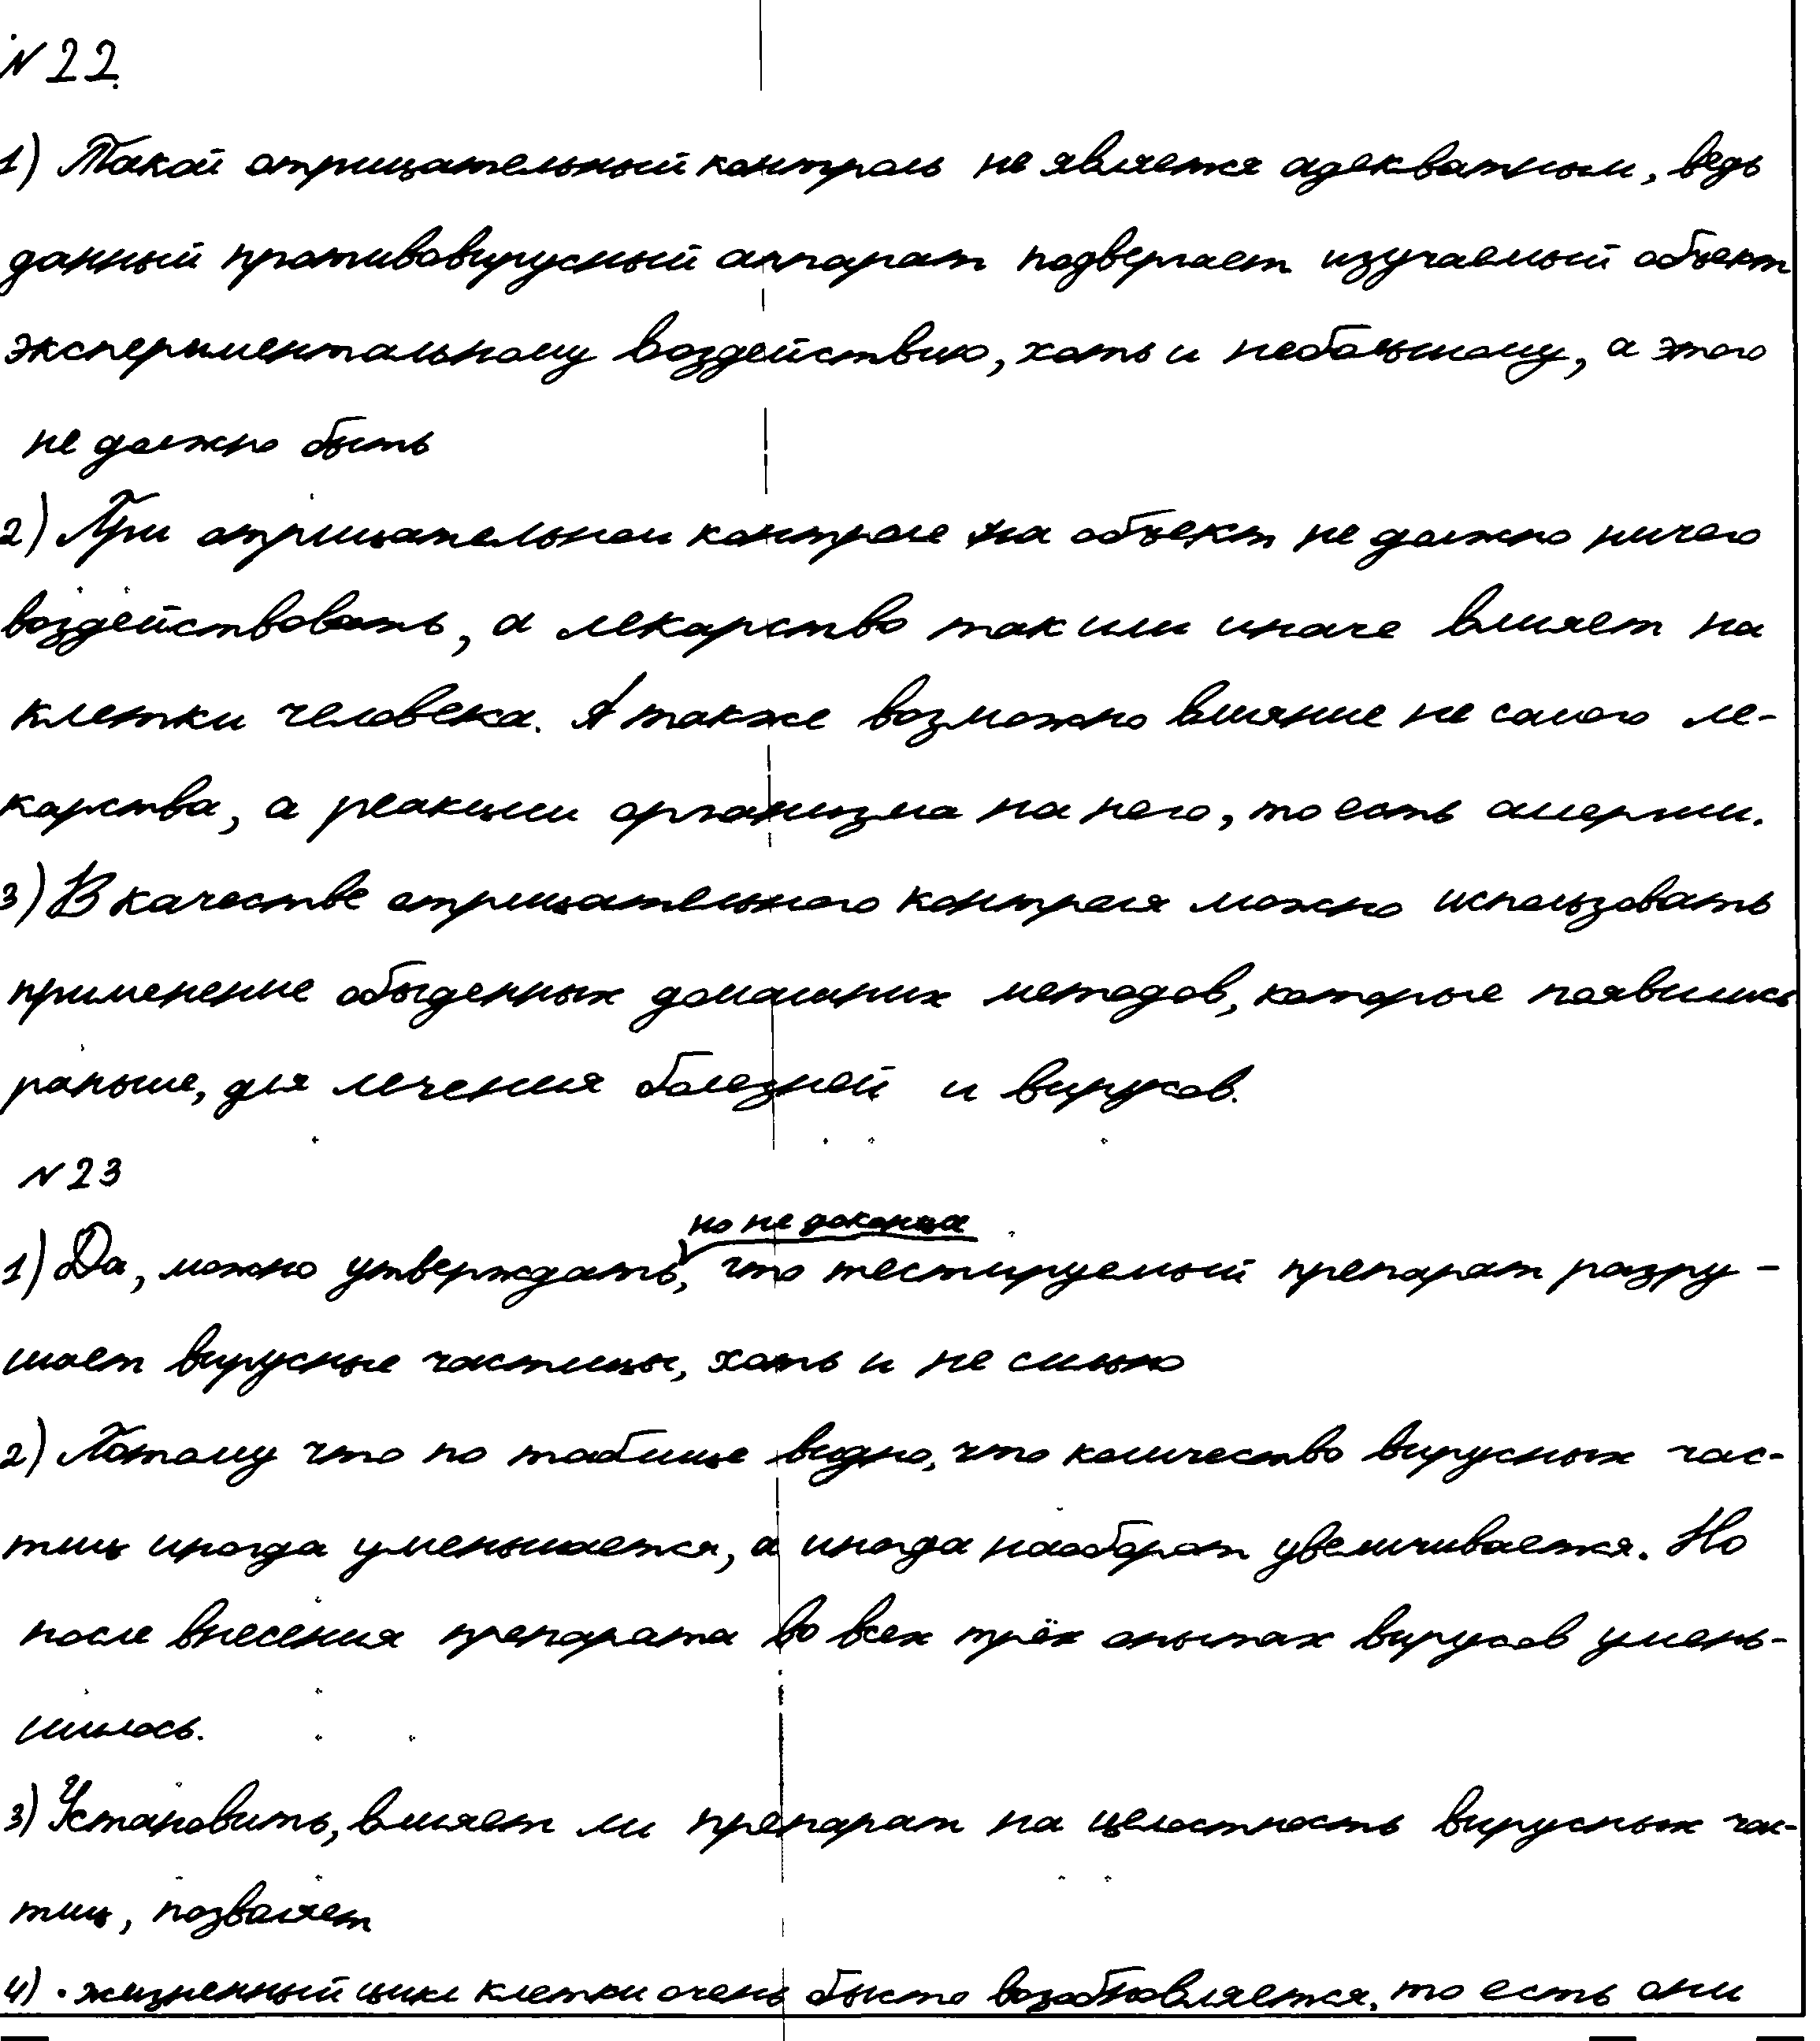 №22.
1) Такой отрицательный контроль не является адекватным, ведь
данный противовирусный аппарат подвергает изучаемый объект
экспериментальному воздействию, хоть и небольшому, а этого
не должно быть
2) При отрицательном контроле на объект не должно ничего
воздействовать, а лекарство так или иначе влияет на
клетки человека. А также возможно влияние не самого ле-
карства, а реакции организма на него, то есть аллергии.
3) В качестве отрицательного контроля можно использовать
применение обыденных домашних методов, которые появились
раньше, для лечения болезней и вирусов.
№23
но не до конца
1) Да, можно утверждать, что тестируемый препарат разру-
шает вирусные частицы, хоть и не сильно
2) Потому что по таблице видно, что количество вирусных час-
тиц иногда уменьшается, а иногда наоборот увеличивается. Но
после внесения препарата во всех трёх опытах вирусов умень-
шилось.
3) Установить, влияет ли препарат на целостность вирусных час-
тиц, позволяет
4) · жизненный цикл клетки очень бысто возобновляется, то есть они